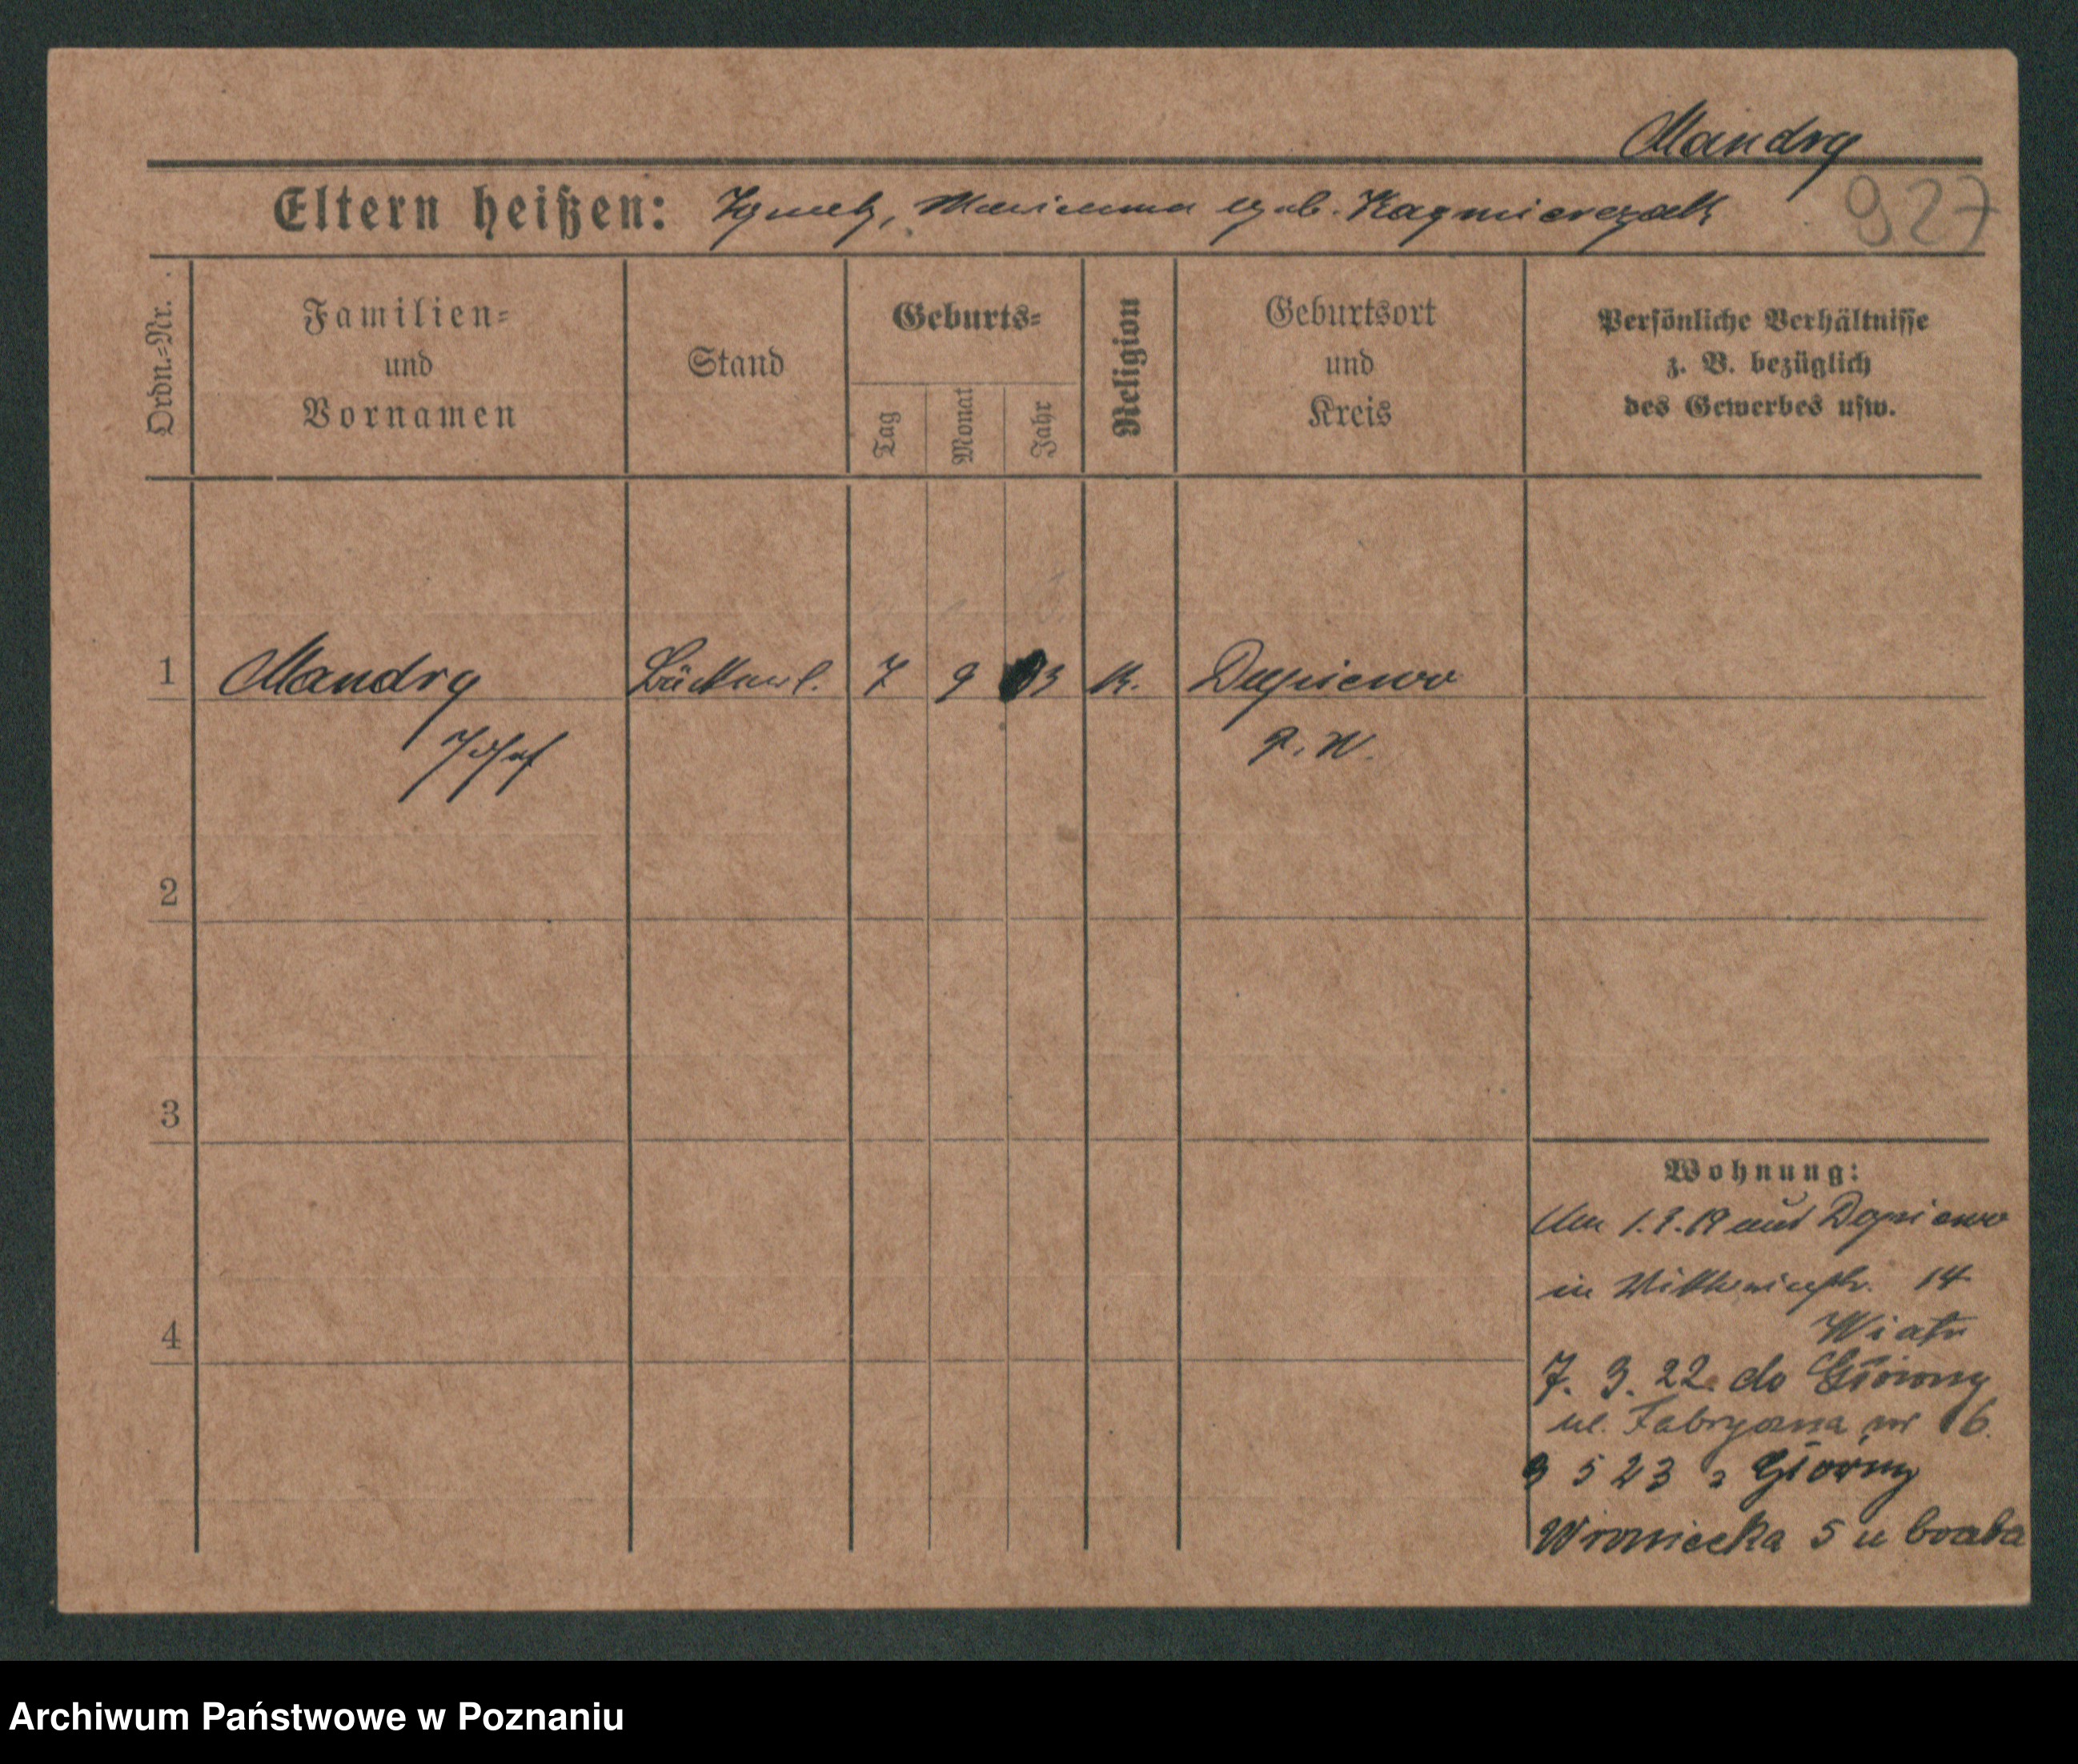 Mandry
Eltern heißen: Ignatz, Marianna geb. Kazmierczak
927
Ordn.=Nr.
Familien=
und
Vornamen
Stand
Geburts=
Tag
Monat
Jahr
Religion
Geburtsort
und
Kreis
Persönliche Verhältnisse
z. B. bezüglich
des Gewerbes usw.
1 Mandry Bäckerl. 7 9 03 K. Dopiewo
Josef P. W.
2
3
4
Wohnung:
Am 1. 2. 19 aus Dopiewo
in 14
Wiatr
7. 3. 22. do Główny
ul. Fabryczna nr 16.
9 5 23 z Główny
Wroniecka 5 u brata
Archiwum Państwowe w Poznaniu